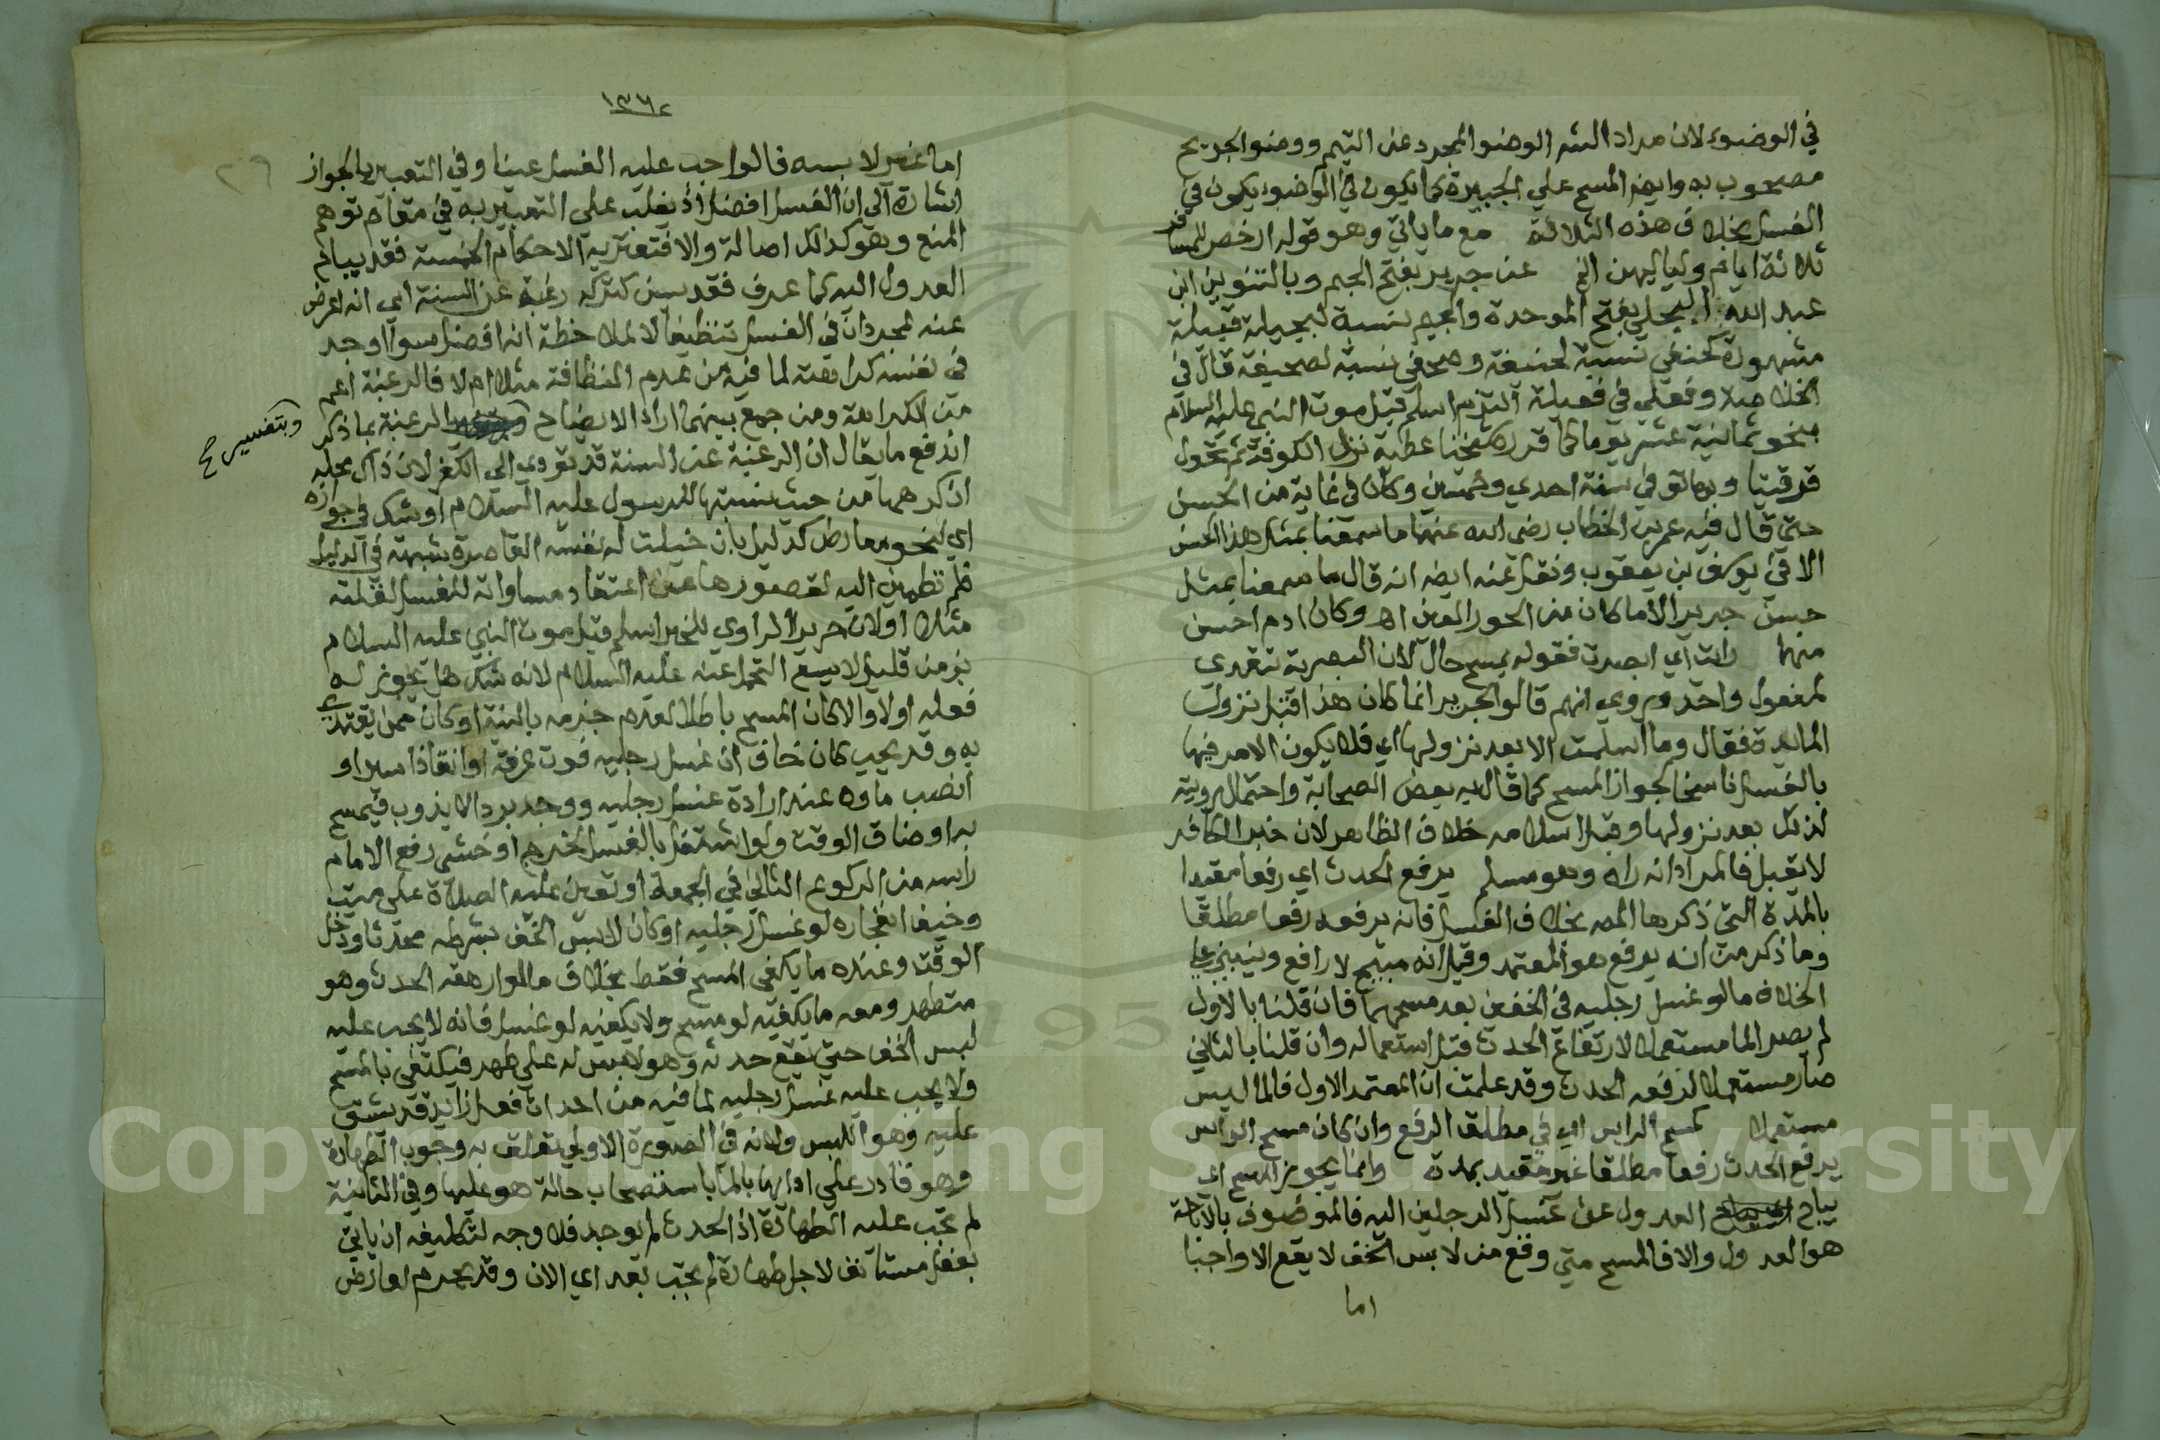 في الوضوء لان مراد الشم الوضوا المجرد عن التيم ووضوا الجريح
مصحوب به وايضا المسح علي الجبيرة كما يكون في الوضوء يكون في
الغسل بخلاف هذه الثلاثة مع ما ياتي وهو قوله ارخص للمسافر
ثلاثة ايام ولياليهن الخ عن جرير بفتح الجيم وبالتنوين ابن
عبد الله البجلي بفتح الموحدة والجيم نسبة لبجيلة قبيلة
مشهورة كحنفي نسبة لحنيفة وصحفي نسبة لصحيفة قال في
الخلاصة وفعلي في فعيلة التزم اسلم قبل موت النبي عليه السلام
بنحو ثمانية عشر يوما كما قرره شيخنا عطية نزل الكوفة ثم تحول
قرقيبا وبها توفي سنة احدي وخمسين وكان في غاية من الحسن
حتي قال فيه عمر بن الخطاب رضي الله عنهما ما سمعنا بمثل هذا الحسن
الا في يوسف بن يعقوب ونقل عنه ايضا انه قال ما سمعنا بمثل
حسن جرير الا ما كان من الحور العين اه وكان ادم احسن
منها رات اي ابصرت فقوله يمسح حال لان البصرية تتعدي
لمفعول واحد وروي انهم قالوا لجرير انما كان هذا قبل نزول
المايدة فقال وما اسلمت الا بعد نزولها اي فلا يكون الامر فيها
بالغسل ناسخا لجواز المسح كما قال به بعض الصحابة واحتمال رويته
لذلك بعد نزولها وقبل اسلامه خلاف الظاهر لان خبر الكافر
لا يقبل فالمراد انه راه وهو مسلم يرفع الحدث اي رفعا مقيدا
بالمدة التي ذكرها المص بخلاف الغسل فانه يرفعه رفعا مطلقا
وما ذكر من انه يرفع هو المعتمد وقيل انه مبيح لا رافع وينبني علي
الخلاف ما لو غسل رجليه في الخفين بعد مسحهما فان قلنا بالاول
لم يصر الما مستعملا لارتفاع الحدث قبل استعماله وان قلنا بالثاني
صار مستعملا لرفعه الحدث وقد علمت ان المعتمد الاول فالما ليس
مستعملا كمسح الراس اي في مطلق الرفع وان كان مسح الراس
يرفع الحدث رفعا مطلقا غير مقيد بمدة وانما يجوز المسح اي
يباح العدول عن غسل الرجلين اليه فالموصوف بالاباحة
هو العدول والا فالمسح متي وقع من لابس الخف لا يقع الا واجبا
اما
١٣٦٢
٢٦
اما غير لابسه فالواجب عليه الغسل عينا وفي التعبير بالجواز
اشارة الي ان الغسل افضل اذ يغلب علي التعبير به في مقام توهم
المنع وهو كذلك اصالة والا فتعتريه الاحكام الخمسة فقد يباح
العدول اليه كما عرف فقد يسن كتركه رغبة عن السنة اي انه اعرض
عنه لمجرد ان في الغسل تنظيفا لا لملاحظة انه افضل سوا اوجد
في نفسه كراهته لما فيه من عدم النظافة مثلا ام لا فالرغبة اعم
من الكراهة ومن جمع بينهما اراد الايضاح الرغبة بما ذكر
وبتفسير صح
اندفع ما يقال ان الرغبة عن السنة قد تودي الي الكفر لان ذاك محله
ان كرهها من حيث نسبتها للرسول عليه السلام او شك في جوازه
اي لنحو معارض كدليل بان خيلت له نفسه القاصرة شبهة في الدليل
فلم تطمئن اليه لقصورها عن اعتقاد مساواته للغسل لقلته
مثلا او لان جريرا الراوي للخبر اسلم قبل موت النبي عليه السلام
بزمن قليل لا يسع التحمل عنه عليه السلام لانه شك هل يجوز له
فعله اولا والا كان المسح باطلا لعدم جزمه بالنية او كان ممن يقتدي
به وقد يجب كان خاف ان غسل رجليه فوت عرفة او انقاذ اسير او
انصب ماوه عند ارادة غسل رجليه ووجد بردا لا يذوب فيمسح
به او ضاق الوقت ولو اشتغل بالغسل لخرج او خشي رفع الامام
راسه من الركوع الثاني في الجمعة او تعين عليه الصلاة علي ميت
وخيف انفجاره لو غسل رجليه او كان لابس الخف بشرطه محدثا ودخل
الوقت وعنده ما يكفي المسح فقط بخلاف ما لو ارهقه الحدث وهو
متطهر ومعه ما يكفيه لو مسح ولا يكفيه لو غسل فانه لا يجب عليه
لبس الخف حتي يقع حدثه وهو لابس له علي طهر فيكتفي بالمسح
ولا يجب عليه غسل رجليه لما فيه من احداث فعل زايد قد يشق
عليه وهو اللبس ولانه في الصورة الاولي تعلق به وجوب الطهارة
وهو قادر علي ادايها بالما باستصحاب حالة هو عليها وفي الثانية
لم تجب عليه الطهارة اذ الحدث لم يوجد فلا وجه لتكليفه ان ياتي
بفعل مستانف لاجل طهارة لم تجب بعد اي الان وقد يحرم لعارض
Copyright © King Saud University
1957